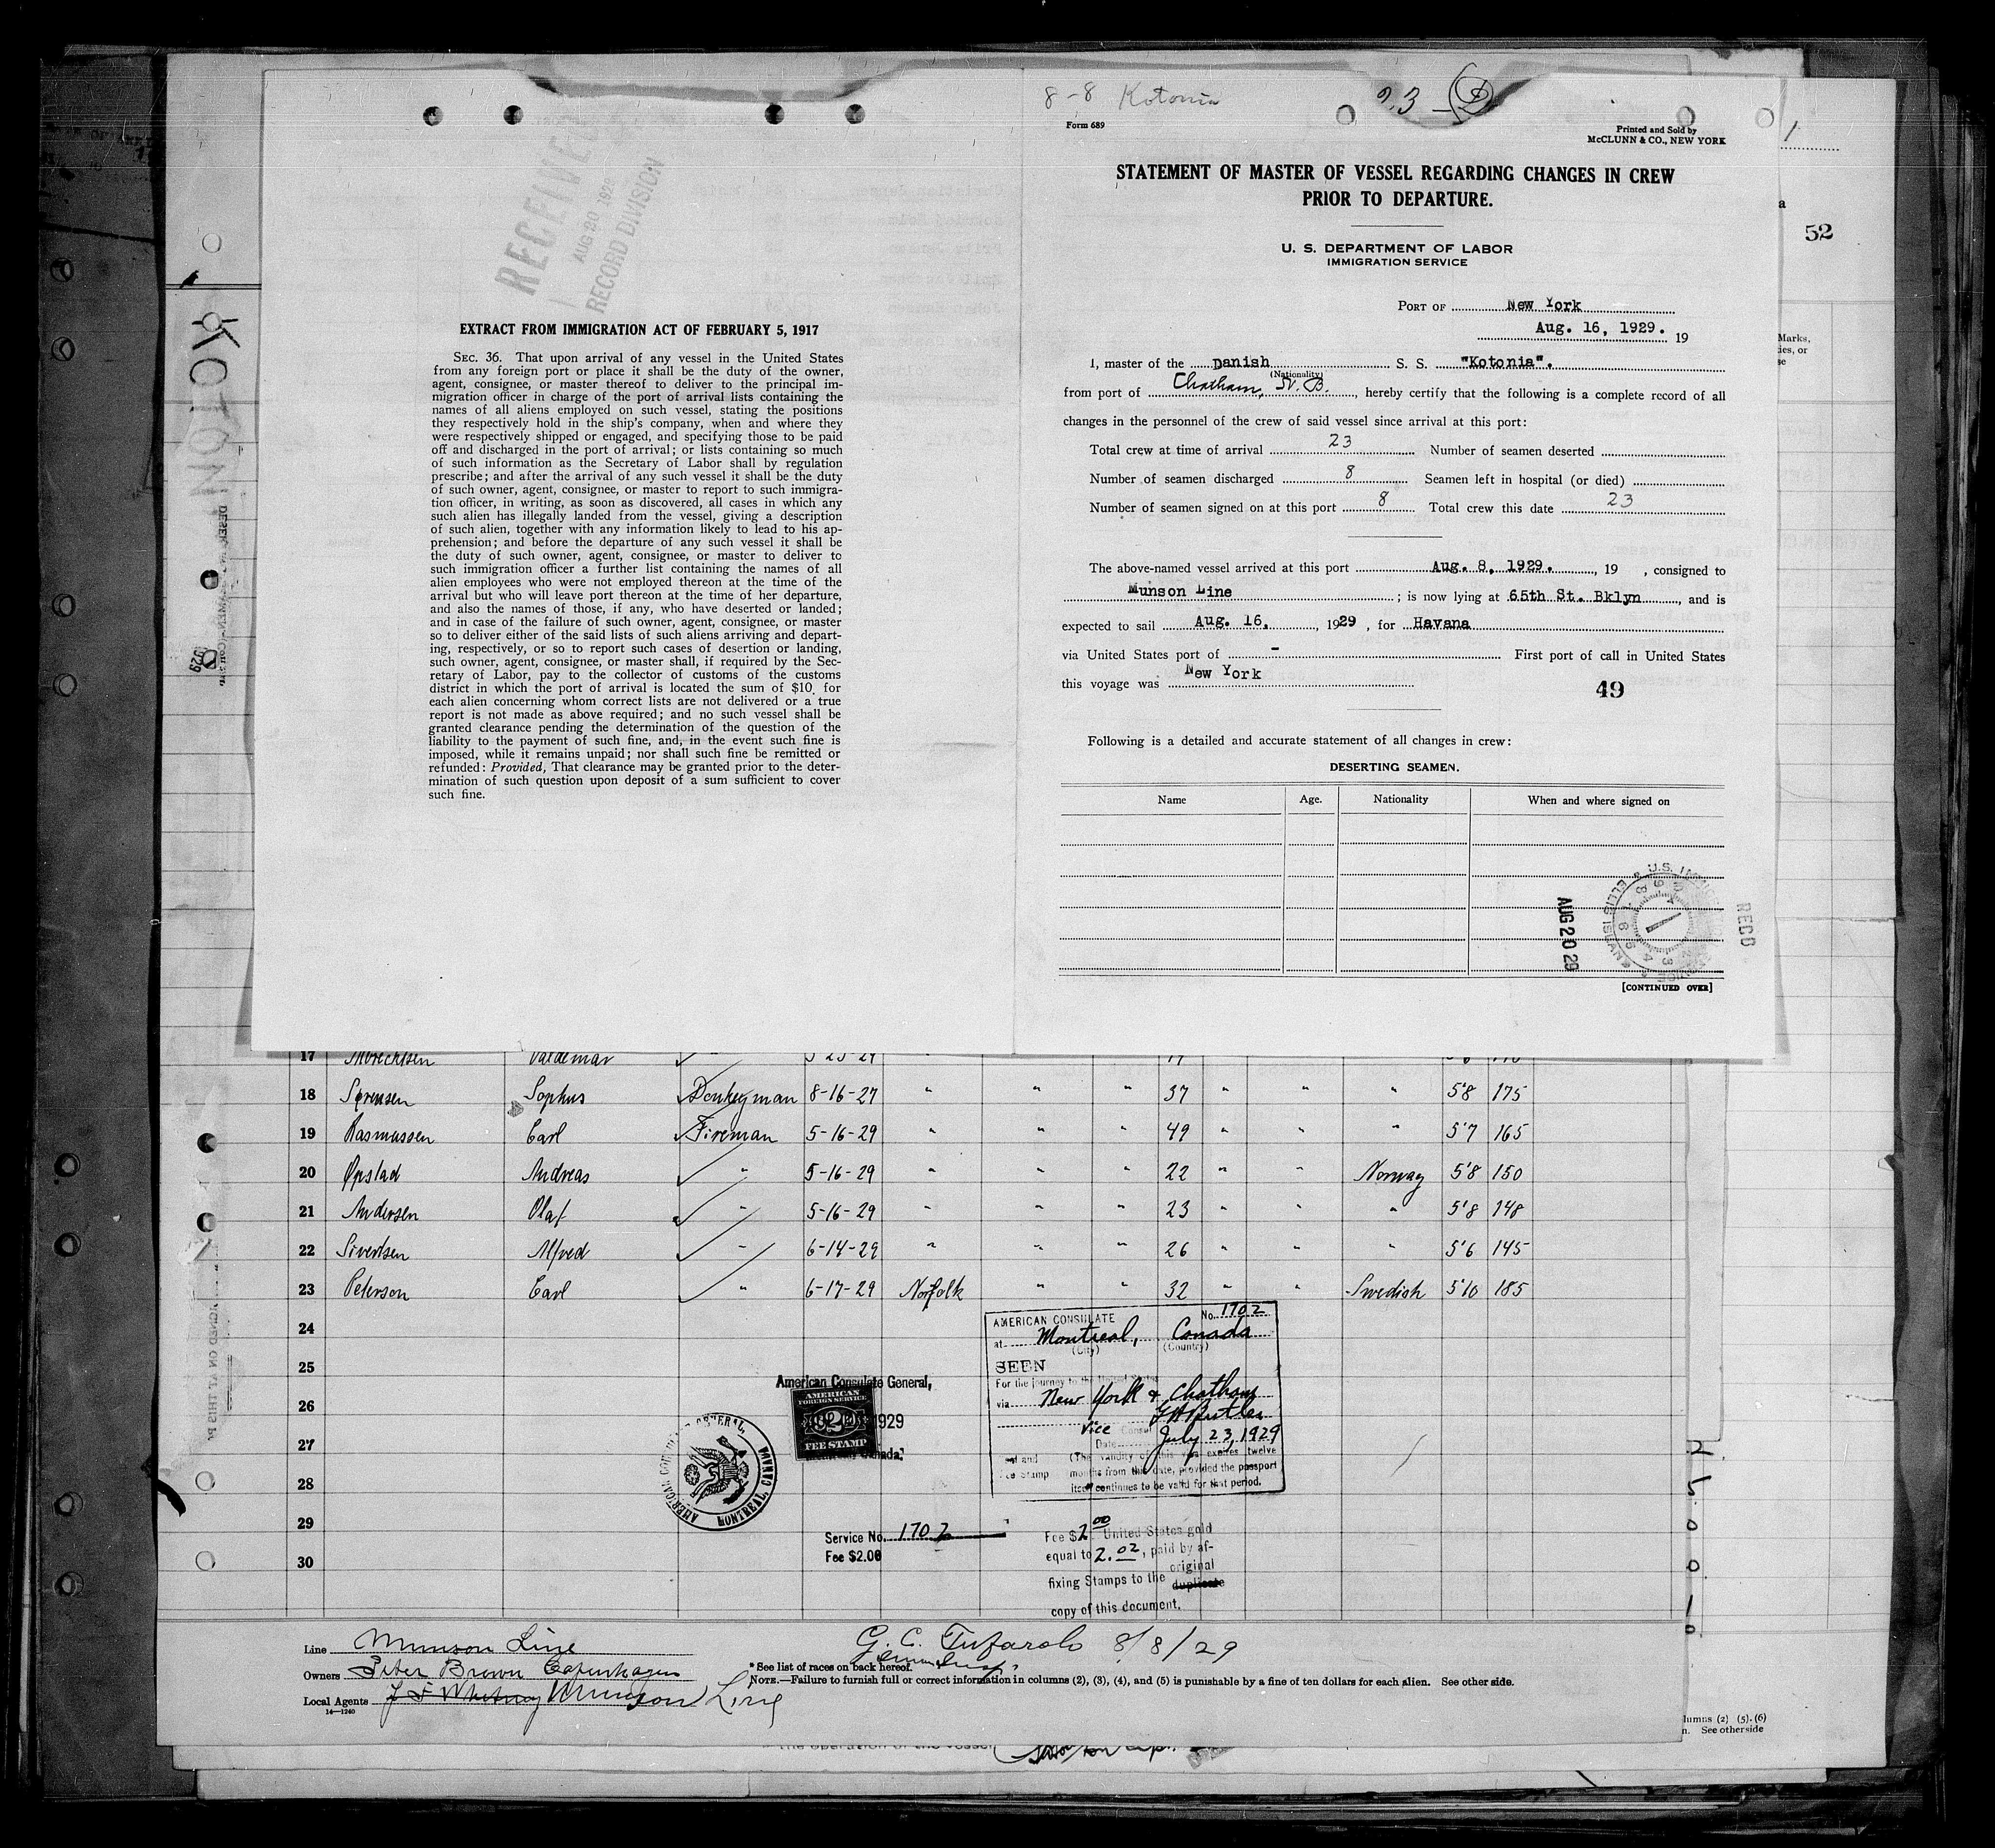 8-8 Kotonia
23
Form 689
Printed and Sold by
McCLUNN & CO., NEW YORK
RECEIVED
AUG 20 1929
RECORD DIVISION
EXTRACT FROM IMMIGRATION ACT OF FEBRUARY 5, 1917
SEC. 36. That upon arrival of any vessel in the United States
from any foreign port or place it shall be the duty of the owner,
agent, consignee, or master thereof to deliver to the principal im-
migration officer in charge of the port of arrival lists containing the
names of all aliens employed on such vessel, stating the positions
they respectively hold in the ship's company, when and where they
were respectively shipped or engaged, and specifying those to be paid
off and discharged in the port of arrival; or lists containing so much
of such information as the Secretary of Labor shall by regulation
prescribe; and after the arrival of any such vessel it shall be the duty
of such owner, agent, consignee, or master to report to such immigra-
tion officer, in writing, as soon as discovered, all cases in which any
such alien has illegally landed from the vessel, giving a description
of such alien, together with any information likely to lead to his ap-
prehension; and before the departure of any such vessel it shall be
the duty of such owner, agent, consignee, or master to deliver to
such immigration officer a further list containing the names of all
alien employees who were not employed thereon at the time of the
arrival but who will leave port thereon at the time of her departure,
and also the names of those, if any, who have deserted or landed;
and in case of the failure of such owner, agent, consignee, or master
so to deliver either of the said lists of such aliens arriving and depart-
ing, respectively, or so to report such cases of desertion or landing,
such owner, agent, consignee, or master shall, if required by the Sec-
retary of Labor, pay to the collector of customs of the customs
district in which the port of arrival is located the sum of $10 for
each alien concerning whom correct lists are not delivered or a true
report is not made as above required; and no such vessel shall be
granted clearance pending the determination of the question of the
liability to the payment of such fine, and, in the event such fine is
imposed, while it remains unpaid; nor shall such fine be remitted or
refunded: Provided, That clearance may be granted prior to the deter-
mination of such question upon deposit of a sum sufficient to cover
such fine.
STATEMENT OF MASTER OF VESSEL REGARDING CHANGES IN CREW
PRIOR TO DEPARTURE.
U. S. DEPARTMENT OF LABOR
IMMIGRATION SERVICE
PORT OF New York
Aug. 16, 1929. 19
I, master of the Danish S. S. "Kotonia".
(Nationality)
from port of Chatham, N. B., hereby certify that the following is a complete record of all
changes in the personnel of the crew of said vessel since arrival at this port:
Total crew at time of arrival 23 Number of seamen deserted
Number of seamen discharged 8 Seamen left in hospital (or died)
Number of seamen signed on at this port 8 Total crew this date 23
The above-named vessel arrived at this port Aug. 8, 1929. , 19 , consigned to
Munson Line ; is now lying at 65th St. Bklyn , and is
expected to sail Aug. 16, , 1929 , for Havana
via United States port of - First port of call in United States
this voyage was New York
49
Following is a detailed and accurate statement of all changes in crew:
DESERTING SEAMEN.
Name Age. Nationality When and where signed on
AUG 20 29
RECD
[CONTINUED OVER]
52
Marks,
KOTONIA
17 Valdemar
18 Sørensen Sophus Donkeyman 8-16-27 " " " 37 " " " 5'8 175
19 Rasmussen Carl Fireman 5-16-29 " " " 49 " " " 5'7 165
20 Andreas " 5-16-29 " " " 22 " " Norway 5'8 150
21 Andersen Olaf " 5-16-29 " " " 23 " " " 5'8 148
22 Sivertsen Alfred " 6-14-29 " " " 26 " " " 5'6 145
23 Peterson Carl " 6-17-29 Norfolk " " 32 " " Swedish 5'10 185
24
25
26
27
28
29
30
AMERICAN CONSULATE No. 1702
at Montreal, Canada
(City) (Country)
SEEN
For the journey to the United States
via New York & Chatham
Vice Consul
Date July 23, 1929
(The validity of this visa expires twelve
months from this date, provided the passport
continues to be valid for that period.
American Consulate General,
AMERICAN
FOREIGN SERVICE
FEE STAMP
1929
Canada
MONTREAL, CANADA
Service No. 1702
Fee $2.00
Fee $2.00 United States gold
equal to 2.02, paid by af-
fixing Stamps to the original
duplicate
copy of this document.
Line Munson Line
Owners Peter Brown Copenhagen
Local Agents J F Whitney Munson Line
14—1240
G. C. Tufarolo 8/8/29
* See list of races on back hereof.
NOTE.—Failure to furnish full or correct information in columns (2), (3), (4), and (5) is punishable by a fine of ten dollars for each alien. See other side.
columns (2) (5), (6)
See otherside
the operation of the vessel